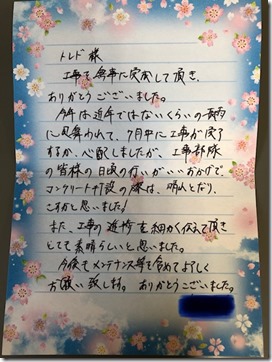 トレド様
工事を無事に完成して頂き、
ありがとうございました。
今年は近年ではないくらいの長雨
に見舞われて、7月中に工事が完了
するか、心配しましたが、工事部隊
の皆様の日頃の行いがいいおかげで、
コンクリート打設の際は、晴れとなり、
さすがと思いました!
また、工事の進捗を細かく伝えて頂き
とても素晴らしいと思いました。
今後もメンテナンス等を含めてよろしく
お願い致します。ありがとうございました。